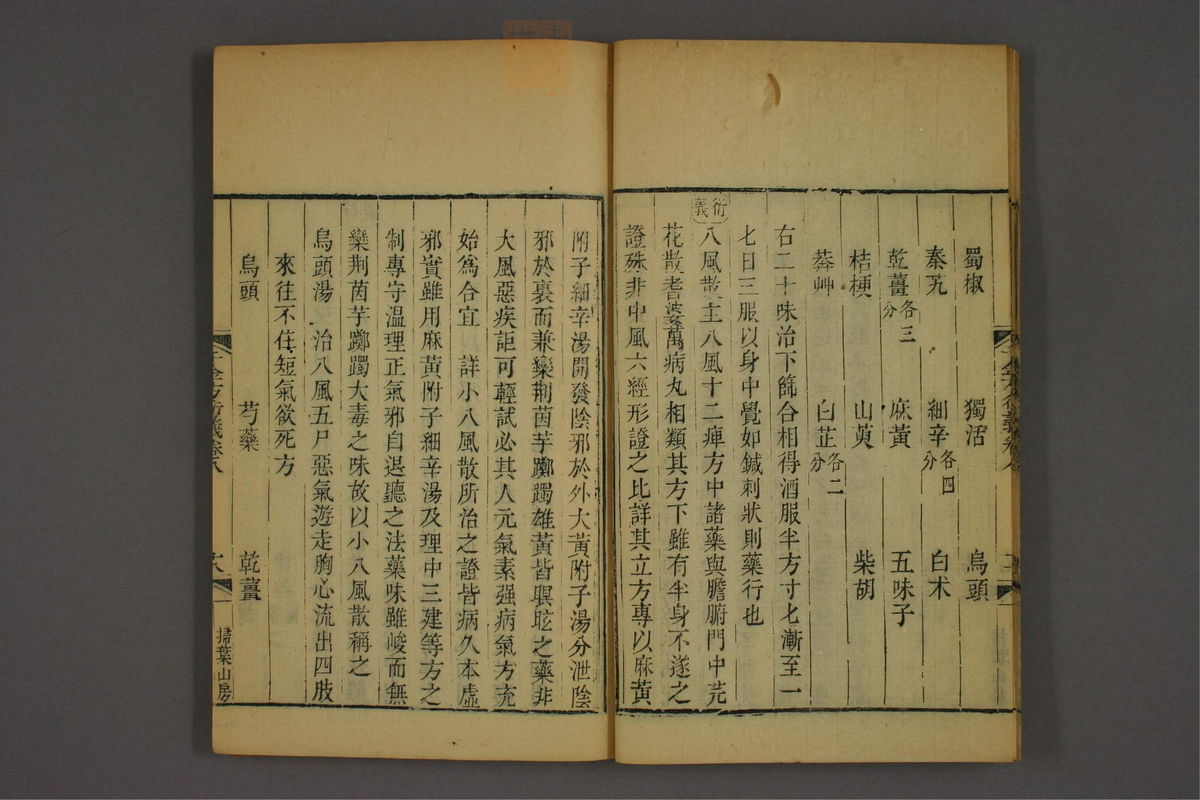 蜀椒 獨活 烏頭
秦艽 細辛各四分 白朮
乾薑各三分 麻黃 五味子
桔梗 山萸 柴胡
莽艸 白芷各二分
右二十味治下篩合相得酒服半方寸匕漸至一
匕日三服以身中覺如鍼刺狀則藥行也
衍義
八風散主八風十二痺方中諸藥與膽腑門中芫
花散耆婆萬病丸相類其方下雖有半身不遂之
證殊非中風六經形證之比詳其立方專以麻黃
附子細辛湯開發陰邪於外大黃附子湯分泄陰
邪於裏而兼欒荆茵芋躑躅雄黃皆瞑眩之藥非
大風惡疾詎可輕試必其人元氣素强病氣方充
始為合宜 詳小八風散所治之證皆病久本虛
邪實雖用麻黃附子細辛湯及理中三建等方之
制專守溫理正氣邪自退聽之法藥味雖峻而無
欒荆茵芋躑躅大毒之味故以小八風散稱之
烏頭湯 治八風五尸惡氣遊走胸心流出四肢
來往不住短氣欲死方
烏頭 芍藥 乾薑
千金方衍義卷八
掃葉山房